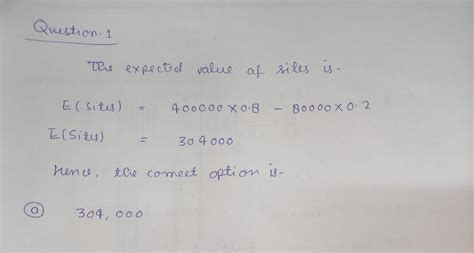 Question-1
The expected value of sites is-
E(sites) = 400000 X 0.8 - 80000 X 0.2
E(Sites) = 304000
Hence, the correct option is-
(a) 304,000